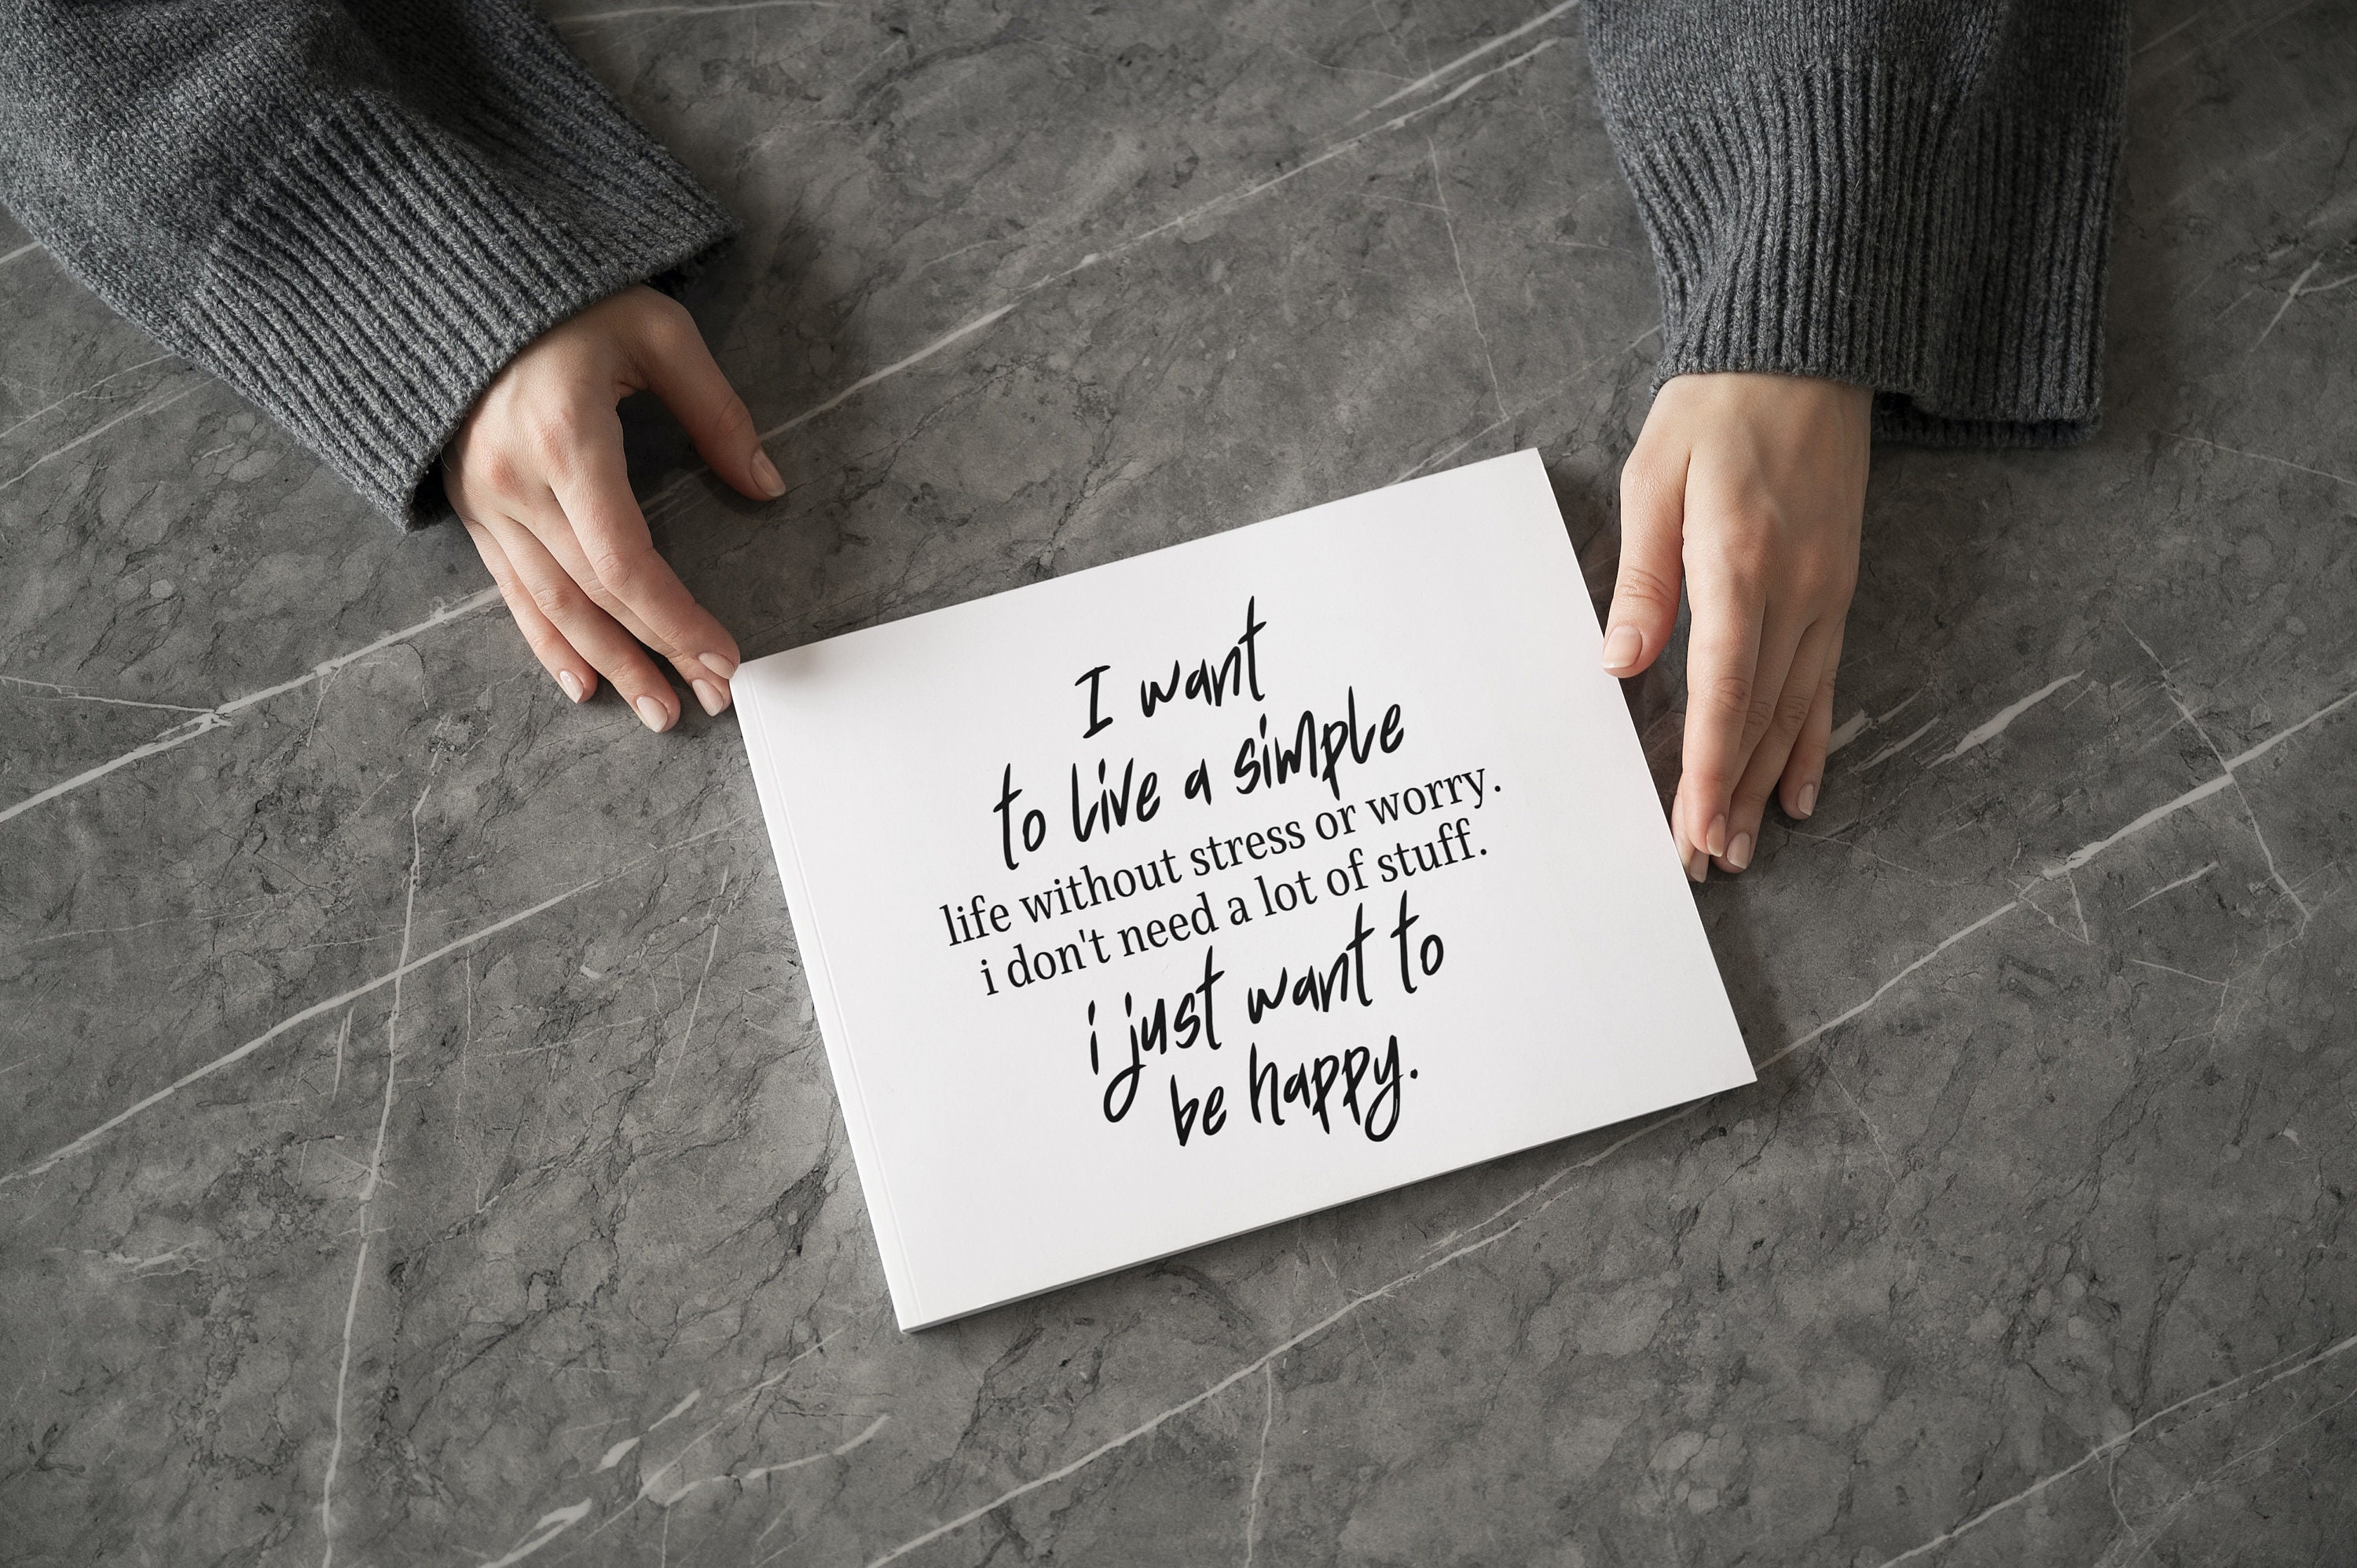 I want
to live a simple
life without stress or worry.
i don't need a lot of stuff.
i just want to
be happy.